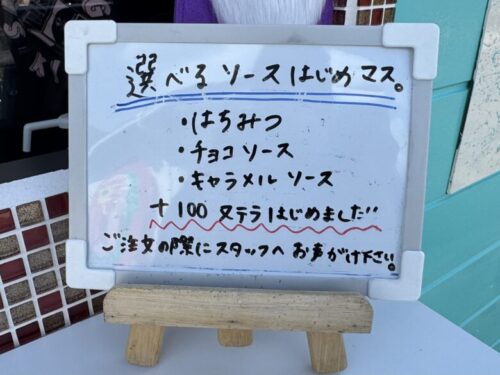 選べるソースはじめマス。
・はちみつ
・チョコソース
・キャラメルソース
+100ヌテラはじめました!!
ご注文の際にスタッフへお声がけ下さい。